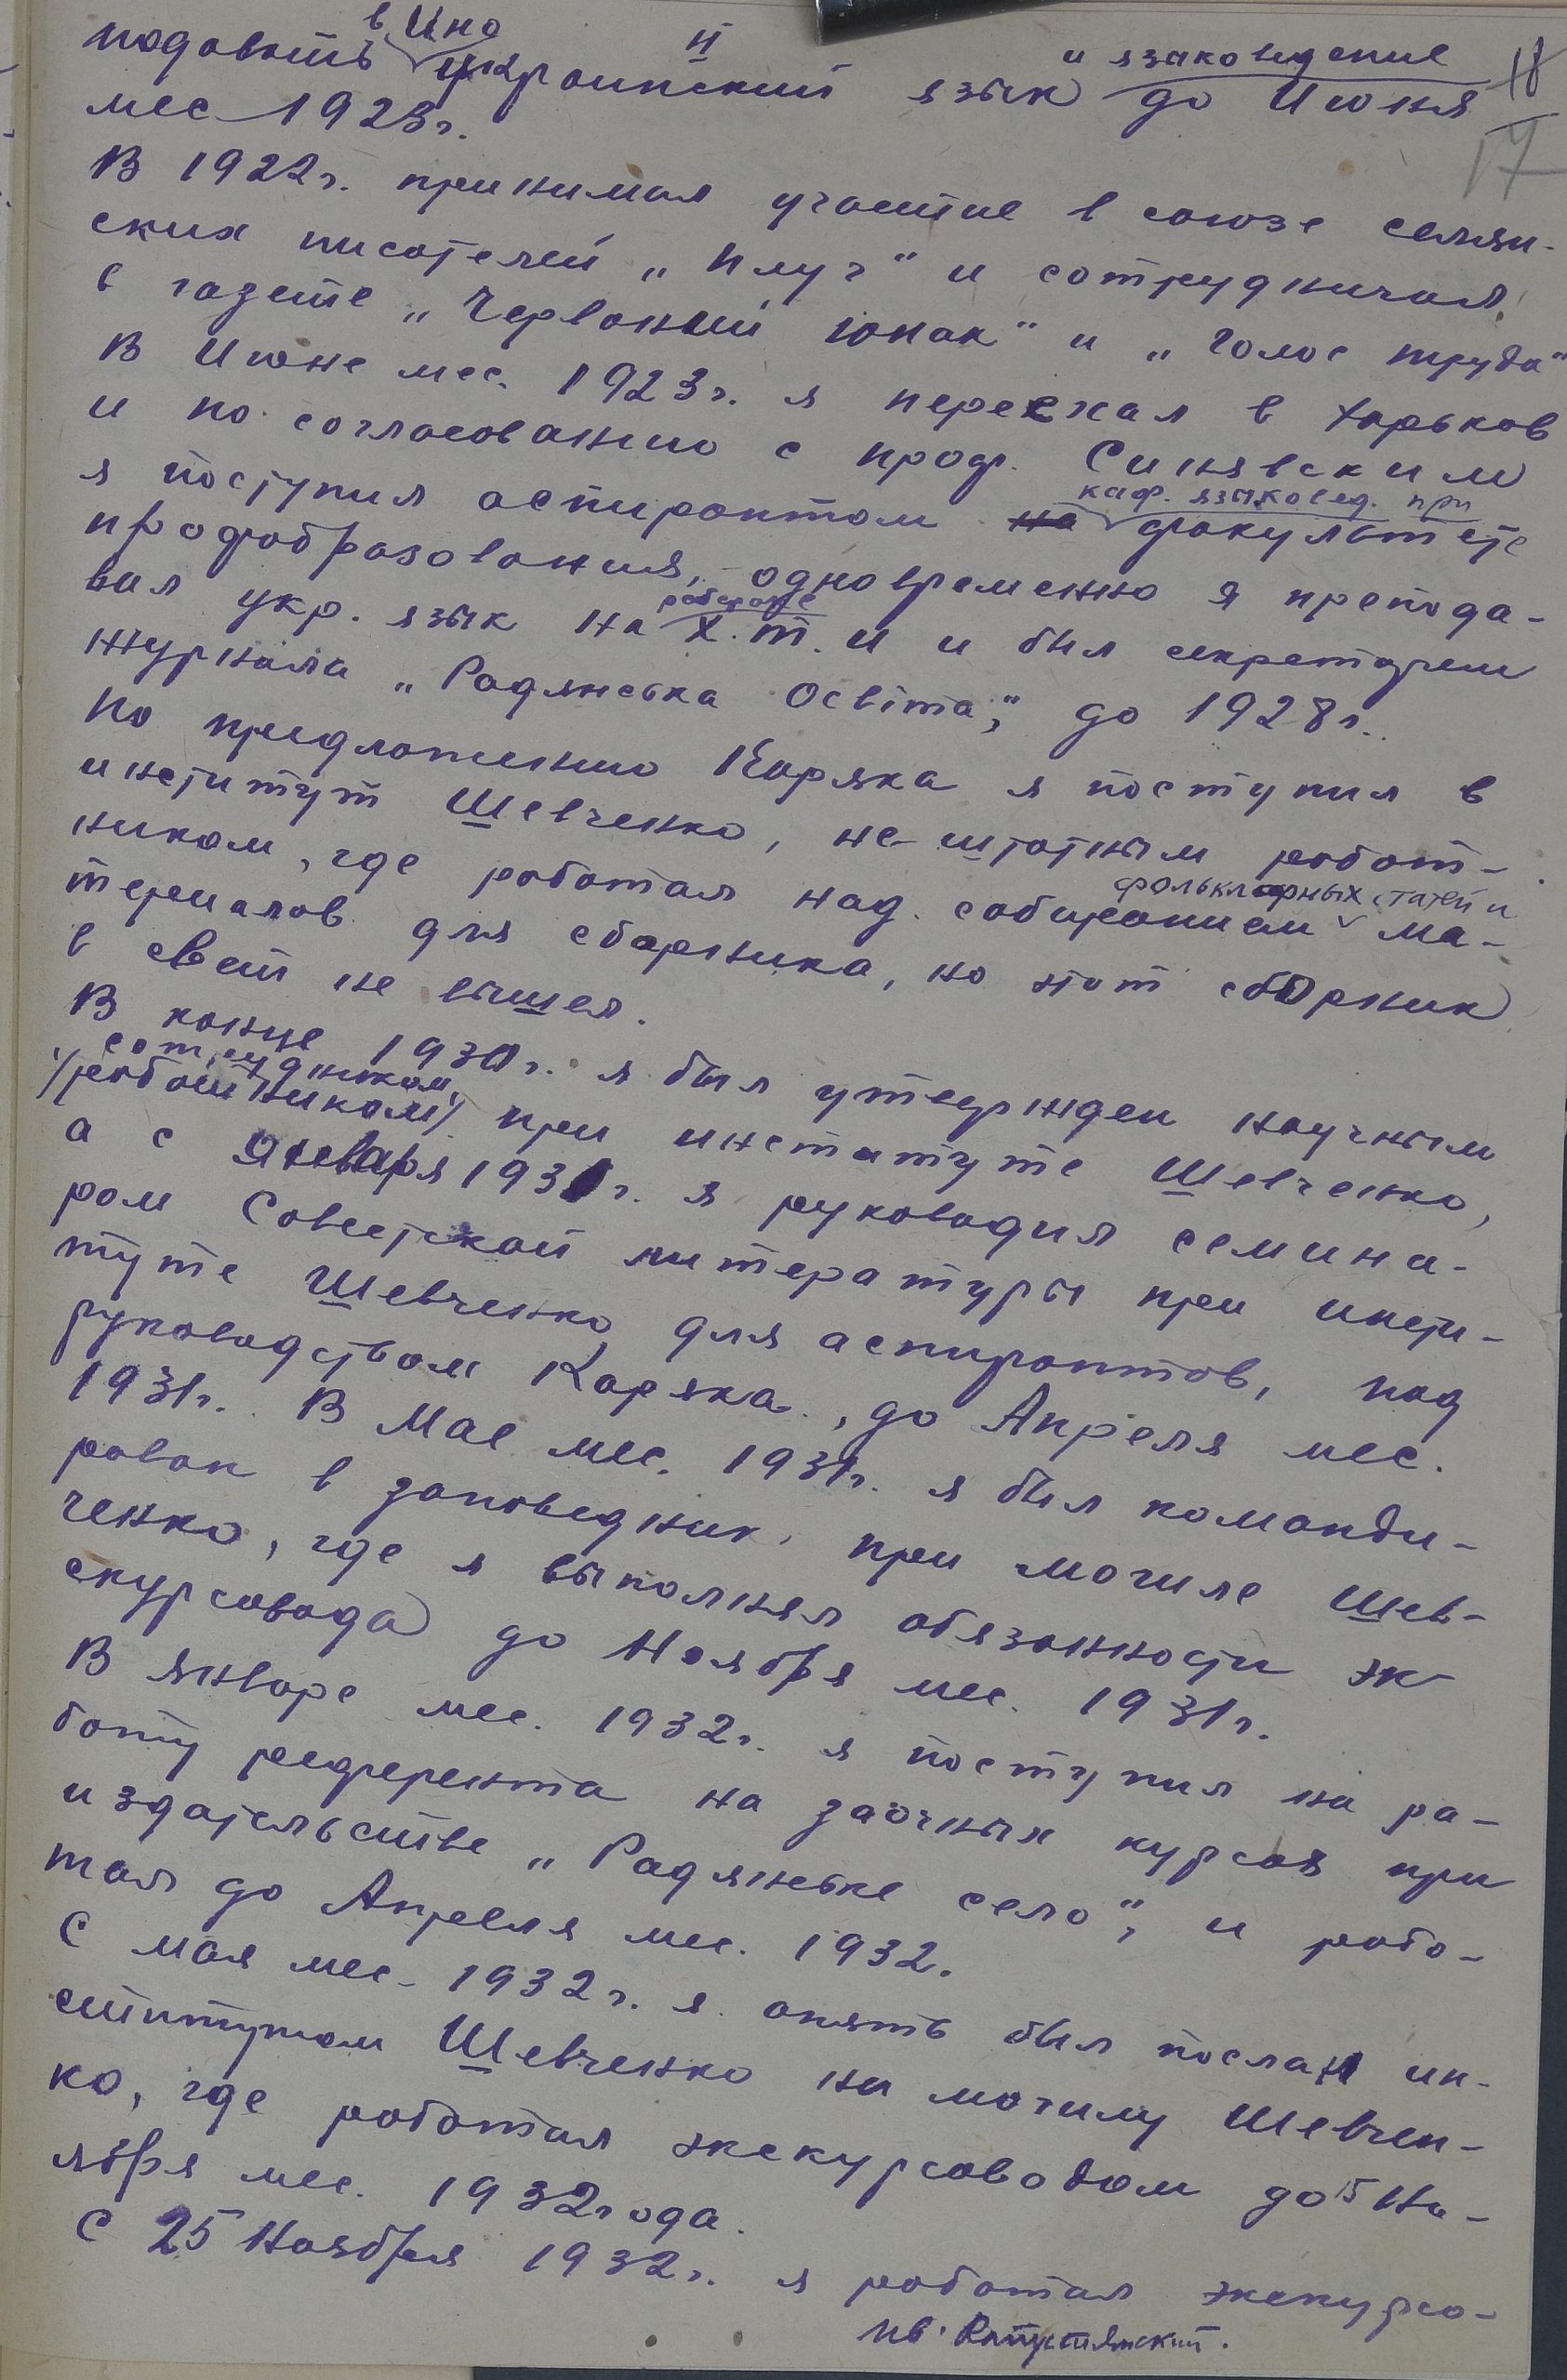 в Ино й и языковедение 18
подовать украинский язык до Июня
мес 1923г. 17
В 1922г. принимал участие в союзе селян-
ских писателей „Плуг" и сотрудничал
в газете „Червоний юнак" и „Голос труда"
В Июне мес. 1923г. я переехал в Харьков
и по согласованию с проф. Синявским
каф. языковед. при
я поступил аспирантом на факультете
профобразования, одновременно я препода-
рабфаке
вал укр. язык на Х.т.и и был секретарем
журнала „Радянська Освіта", до 1928г.
По предложению Коряка я поступил в
институт Шевченко, не штатным работ-
ником, где работал над собиранием ма-
фольклорных статей и
териалов для сборника, но этот сборник
в свет не вышел.
В конце 1930г. я был утвержден научным
сотрудником
/работником/ при институте Шевченко,
а с Января 1931г. я руководил семина-
ром Советской литературы при инсти-
туте Шевченко для аспирантов, под
руководством Коряка, до Апреля мес.
1931г. В Мае мес. 1931г. я был команди-
рован в заповедник, при могиле Шев-
ченко, где я выполнял обязанности эк-
скурсовода до Ноября мес. 1931г.
В январе мес. 1932г. я поступил на ра-
боту референта на заочных курсах при
издательстве „Радянське село", и рабо-
тал до Апреля мес. 1932.
С мая мес. 1932г. я опять был послан ин-
ститутом Шевченко на могилу Шевчен-
ко, где работал экскурсоводом до 15 Но-
ября мес. 1932года.
С 25 Ноября 1932г. я работал экскурсо-
Ив. Капустянский.